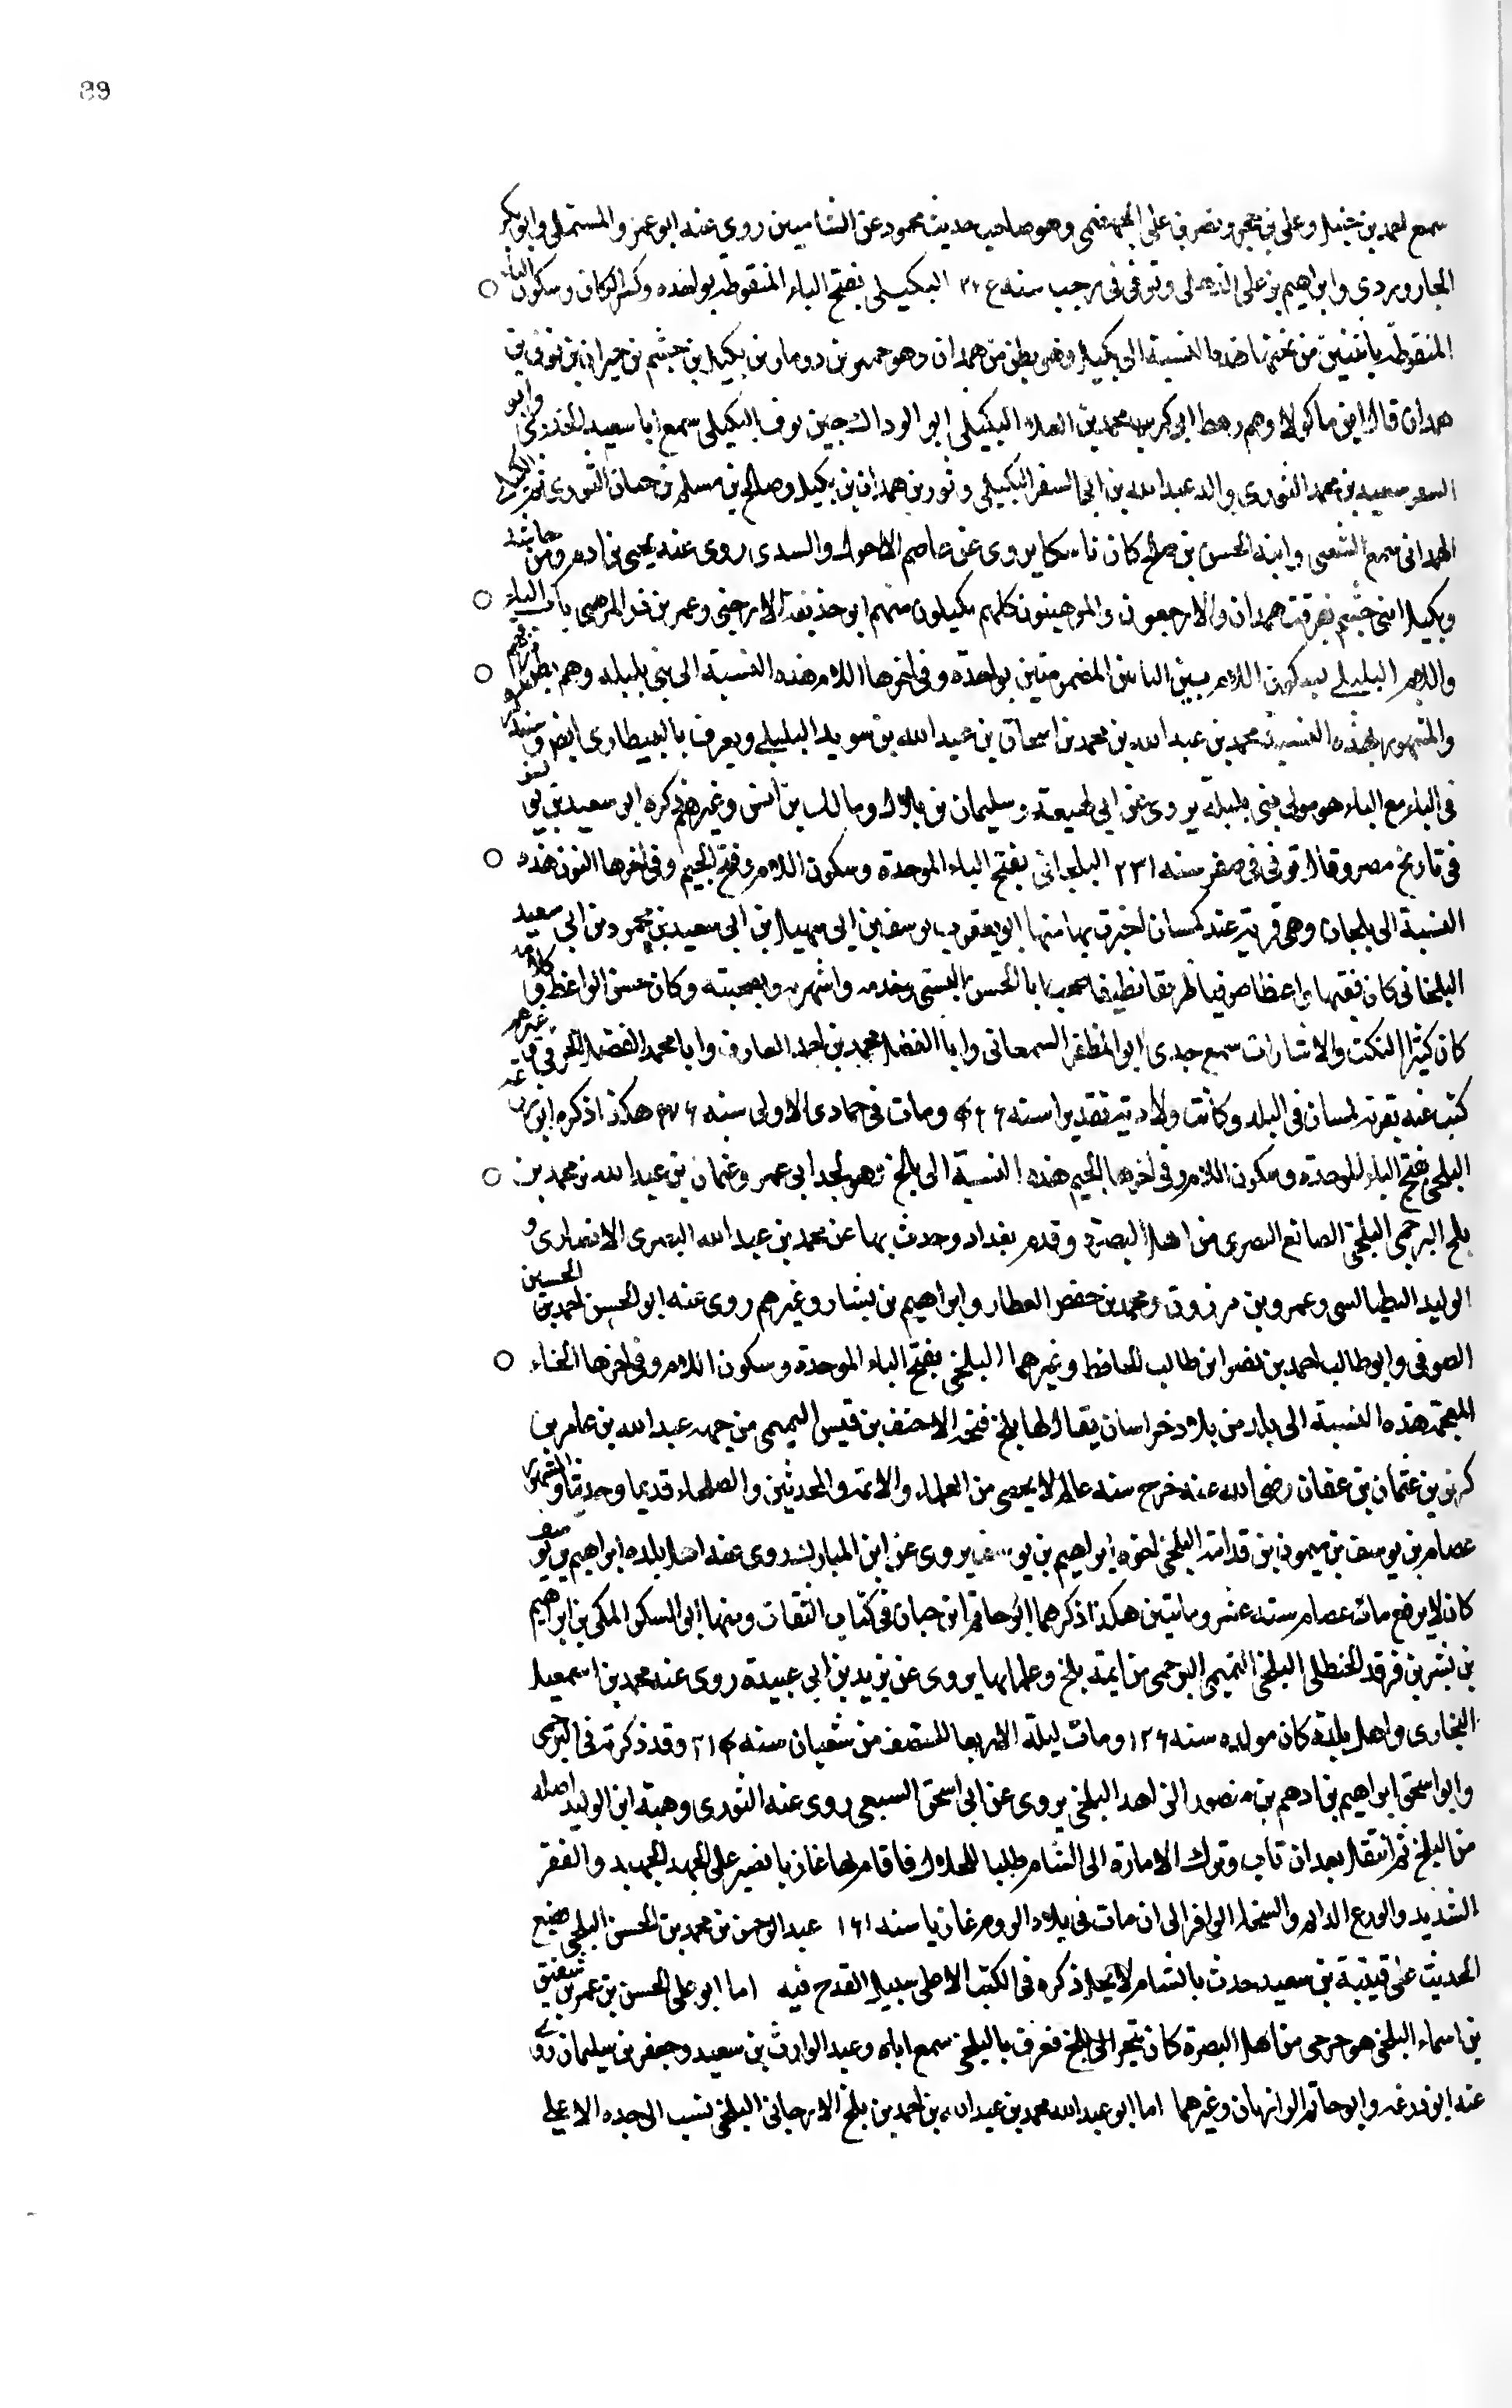 89
سمع احمد بن حنبل وعلى بن حجر ونصر بن على الجهضمى وهو صاحب حديث محمود عن الشاميين روى عنه ابو عمرو المستملى وابو بكر
الجارودى وابراهيم بن على الذهلى وتوفى فى رجب سنه البكيلى بفتح الباء المنقوطه بواحده وكسر الكاف وسكون الياء
المنقوطه باثنتين من تحتها هذه النسبة الى بكيل وهى بطن من همدان وهو جمهور بن دومان بن بكيل بن جشم بن خيران بن نوف بن
همدان قال ابن ماكولا وهم رهط ابى كريب محمد بن العلاء البكيلى ابو الوداك جبر بن نوف البكيلى سمع ابا سعيد الخدرى وابو
السفر سعيد بن محمد الثورى والد عبد الله بن ابى السفر البكيلى وثور بن همدان بن بكيل وصالح بن مسلم بن حيان الثورى
الهمدانى سمع الشعبى وابنه الحسن بن صالح كان ناسكا يروى عن عاصم الاحول والسدى روى عنه يحيى بن ادم ومن حاشد
وبكيل ابنى جشم تفرقت همدان والارحبيون والمرهبيون كلهم بكيلون منهم ابو حذيفة الارحبى وعمر بن ذر المرهبى باب الباء
واللام البلبلى بسكون اللام بين البائين المضمومتين بواحدة وفى اخرها اللام هذه النسبة الى بنى بلبله وهم بطن من فهم
والمشهور بهذه النسبة محمد بن عبد الله بن محمد بن اسحاق بن عبيد الله بن سويد البلبلى ويعرف بالبيطارى ايضا
فى الباء مع الياء هو مولى بنى بلبله يروى عن ابى لهيعة وسليمان بن بلال ومالك بن انس وغيرهم ذكره ابو سعيد بن يونس
فى تاريخ مصر وقال توفى فى صفر سنه ٢٣١ البلجانى بفتح الباء الموحدة وسكون اللام وفتح الجيم وفى اخرها النون هذه
النسبة الى بلجان وهى قرية عند كمسان اجتزت بها منها ابو يعقوب يوسف بن ابى سهل بن ابى سعيد بن محمود بن ابى سعيد
البلجانى كان فقيها واعظا صوفيا ظريفا نظيفا صحب ابا الحسن البستى وخدمه واشتهر بصحبته وكان حسن الوعظ
كان كثير النكت والاشارات سمع جدى ابو المظفر السمعانى وابا الفضل محمد بن احمد العارف وابا محمد الفضل
كتبت عنه بقرية كمسان فى البلد وكانت ولادته تقديرا سنه ومات فى جمادى الاولى سنه هكذا ذكره
البلجى بفتح الباء الموحدة وسكون اللام وفى اخرها الجيم هذه النسبة الى بلج وهو لجد ابى عمرو عثمان بن عبد الله بن محمد بن
بلج البرجمى البلجى الصائغ البصرى من اهل البصرة وقدم بغداد وحدث بها عن محمد بن عبد الله البصرى الانصارى و
الوليد الطيالسى وعمرو بن مرزوق ومحمد بن حفص العطار وابراهيم بن بشار وغيرهم روى عنه ابو الحسن احمد بن الحسين
الصوفى وابو طالب احمد بن نصر ابن طالب الحافظ وغيرهما البلخى بفتح الباء الموحدة وسكون اللام وفى اخرها الخاء
المعجمة هذه النسبة الى بلد من بلاد خراسان يقال لها بلخ فتحها الاحنف بن قيس التميمى من جهه عبد الله بن عامر بن
كريز بن عثمان بن عفان رضى الله عنه خرج منه عالم لا يحصى من العلماء والائمة والمحدثين والصلحاء قديما وحديثا والمشهور
عصام بن يوسف بن ميمون بن قدامة البلخى اخوه ابراهيم بن يوسف يروى عن ابن المبارك روى عنه اهل بلده ابراهيم بن يوسف
كان لا يرفع مات عصام سنه عشر ومايتين هكذا ذكرهما ابو حاتم ابن حبان فى كتاب الثقات ومنها ابو السكن المكى بن ابراهيم
بن بشر بن فرقد الحنظلى البلخى التميمى البرجمى من ايمة بلخ وعلمائها يروى عن يزيد بن ابى عبيدة روى عنه محمد بن اسمعيل
البخارى واهل بلدة كان مولده سنه ١٢٦ ومات ليلة الاربعا للنصف من شعبان سنه وقد ذكرته فى البرجمى
وابو اسحق ابراهيم بن ادهم بن منصور الزاهد البلخى يروى عن ابى اسحق السبيعى روى عنه الثورى وهبة ابن الوليد اصله
من البلخ ثم انتقل بعد ان تاب وترك الامارة الى الشام طلبا للحلال فاقام بها غازيا يصبر على الجهد الجهيد والفقر
الشديد والورع الدائم والسخاء الوافر الى ان مات فى بلاد الروم غازيا سنه ١٦١ عبد الرحمن بن محمد بن الحسن البلخى يضع
الحديث على قتيبة بن سعيد حدث بالشام لا يحل ذكره فى الكتب الا على سبيل القدح فيه اما ابو على الحسن بن عمر بن شقيق
بن اسماء البلخى هو جرمى من اهل البصرة كان يتجر الى البلخ فعرف بالبلخى سمع اباه وعبد الوارث بن سعيد وجعفر بن سليمان روى
عنه ابو زرعه وابو حاتم الرازيان وغيرهما اما ابو عبد الله محمد بن عبد الله بن احمد بن بلخ الارجانى البلخى ينسب الى جده الاعلى